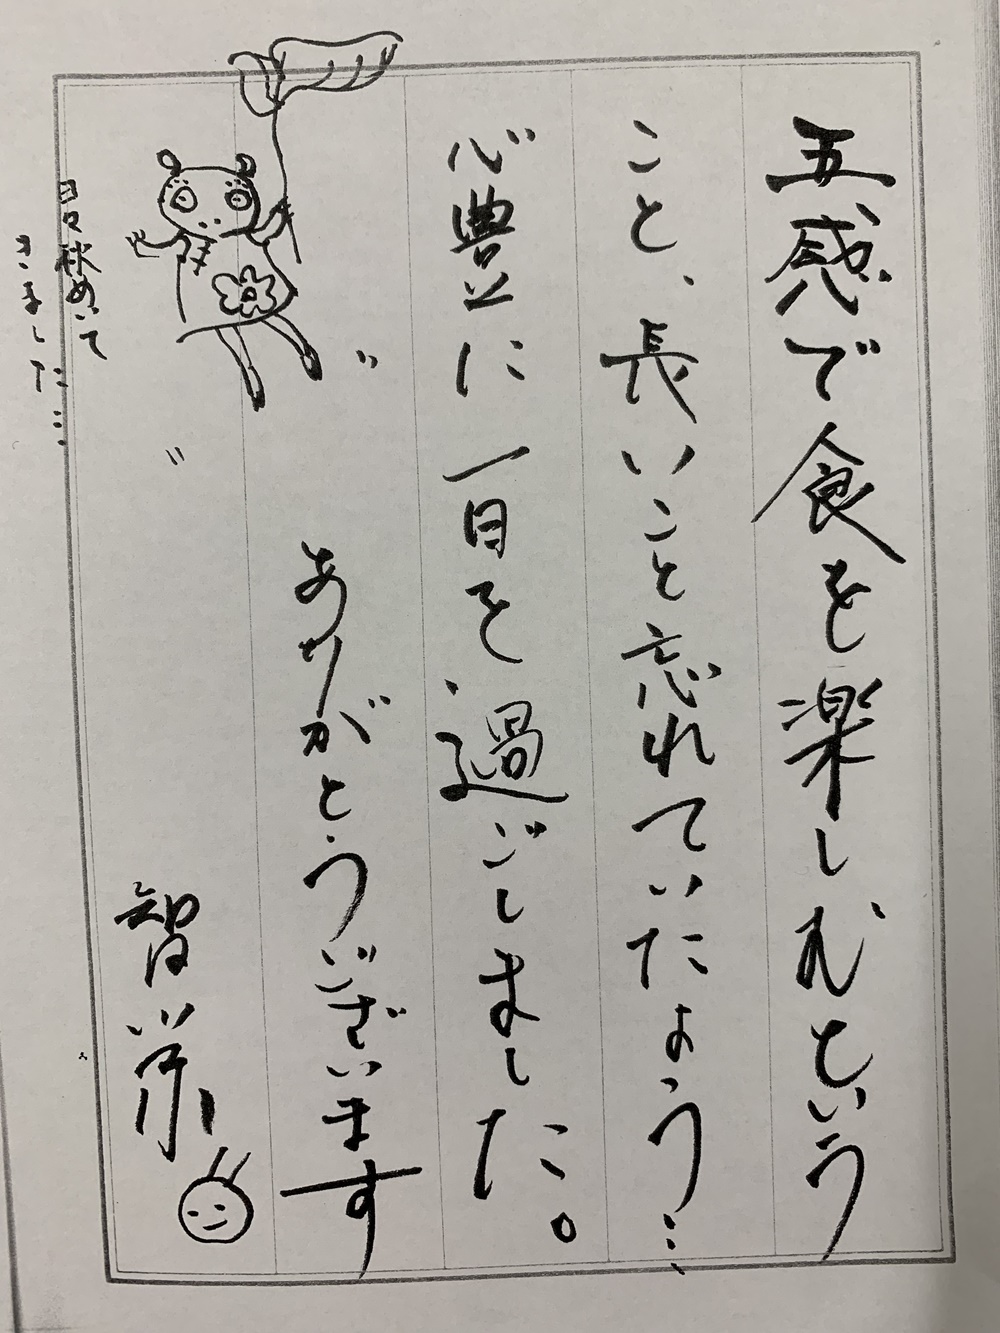 五感で食を楽しむという
こと、長いこと忘れていたよう…
心豊かに一日を過ごしました。
ありがとうございます
日々秋めいて
きました…